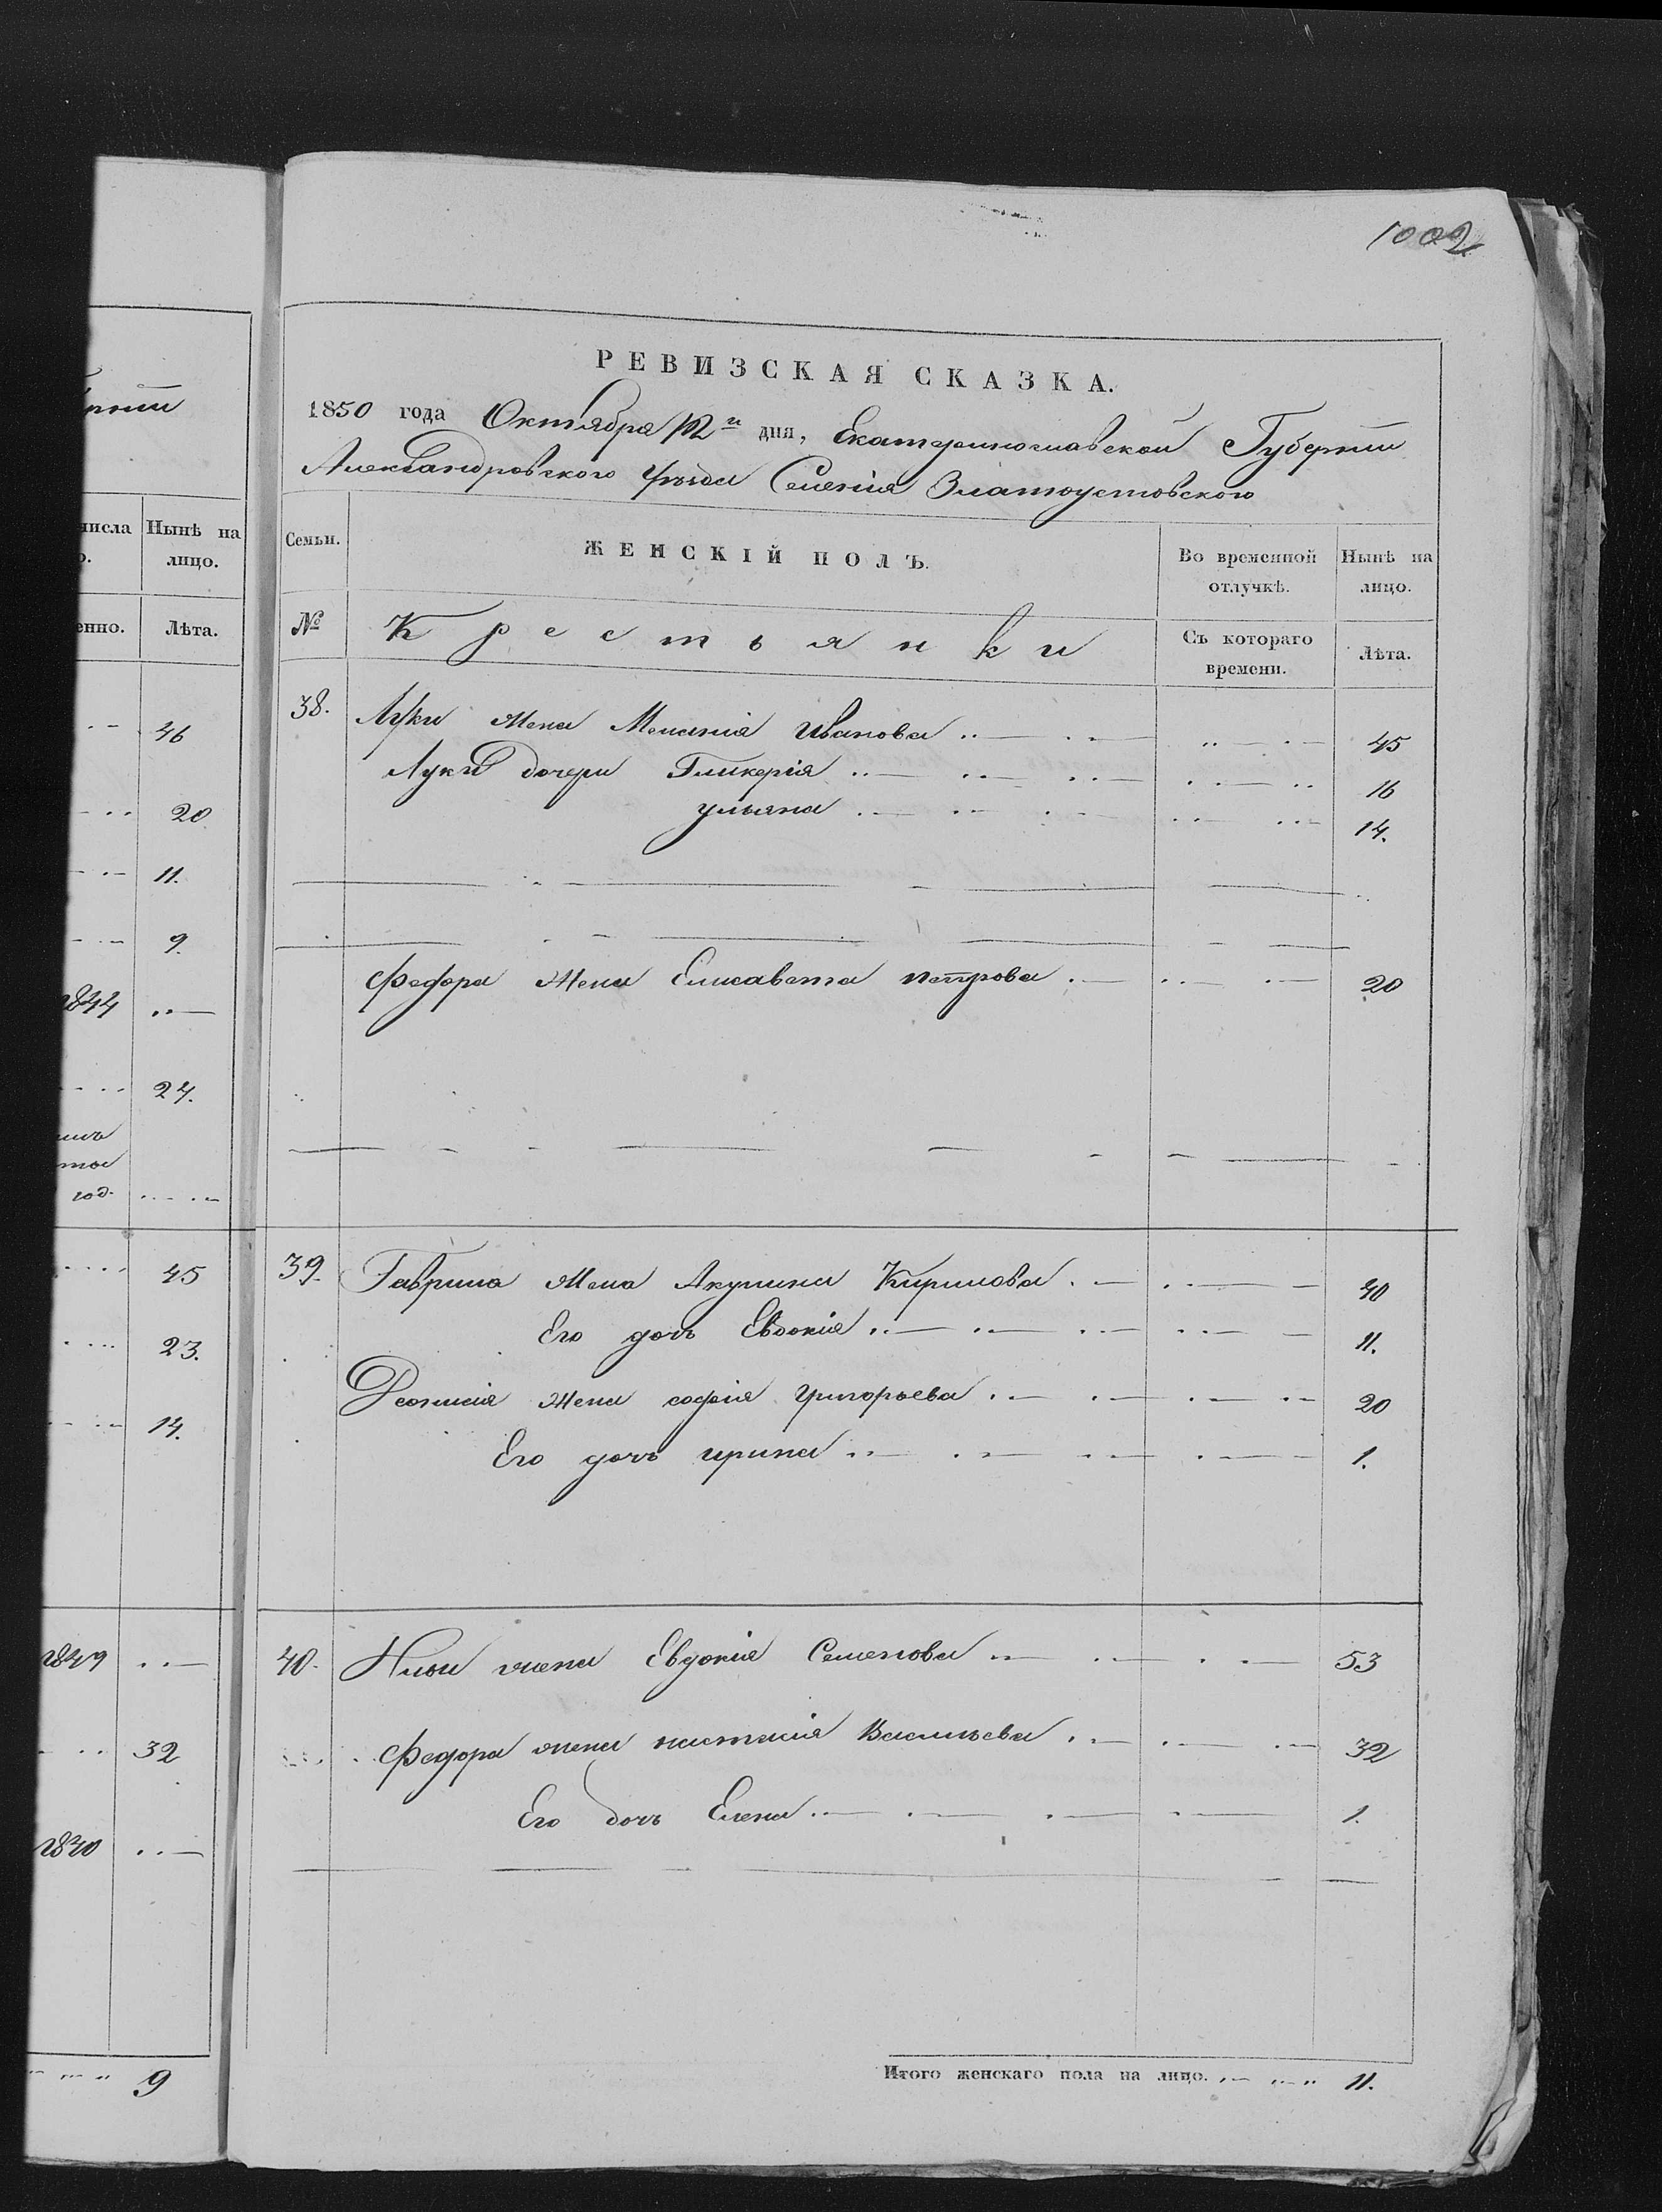 1002
РЕВИЗСКАЯ СКАЗКА.
1850 года Октября 12го дня, Екатеринославской Губернии
Александровского уѣзда Селенія Златоустовского
Семьи. ЖЕНСКІЙ ПОЛЪ. Во временной отлучкѣ. Нынѣ на лицо.
№ Крестьянки Съ котораго времени. Лѣта.
38. Луки жена Меланія Иванова 45
Луки дочери Гликерія 16
Ульяна 14.
Федора жена Елисавета петрова 20
39. Гаврила жена Акулина Кирилова 40
Его дочь Евдокія 11.
Деонисія жена софія григорьева 20
Его дочь ирина 1.
40. Ильи жена Евдокія Семенова 53
Федора жена настасія Васильева 32
Его дочь Елена 1.
Итого женскаго пола на лицо. 11.
числа Нынѣ на
лицо.
Лѣта.
46
20
11.
9.
1844
24.
год.
45
23.
14.
1849
32
1840
9